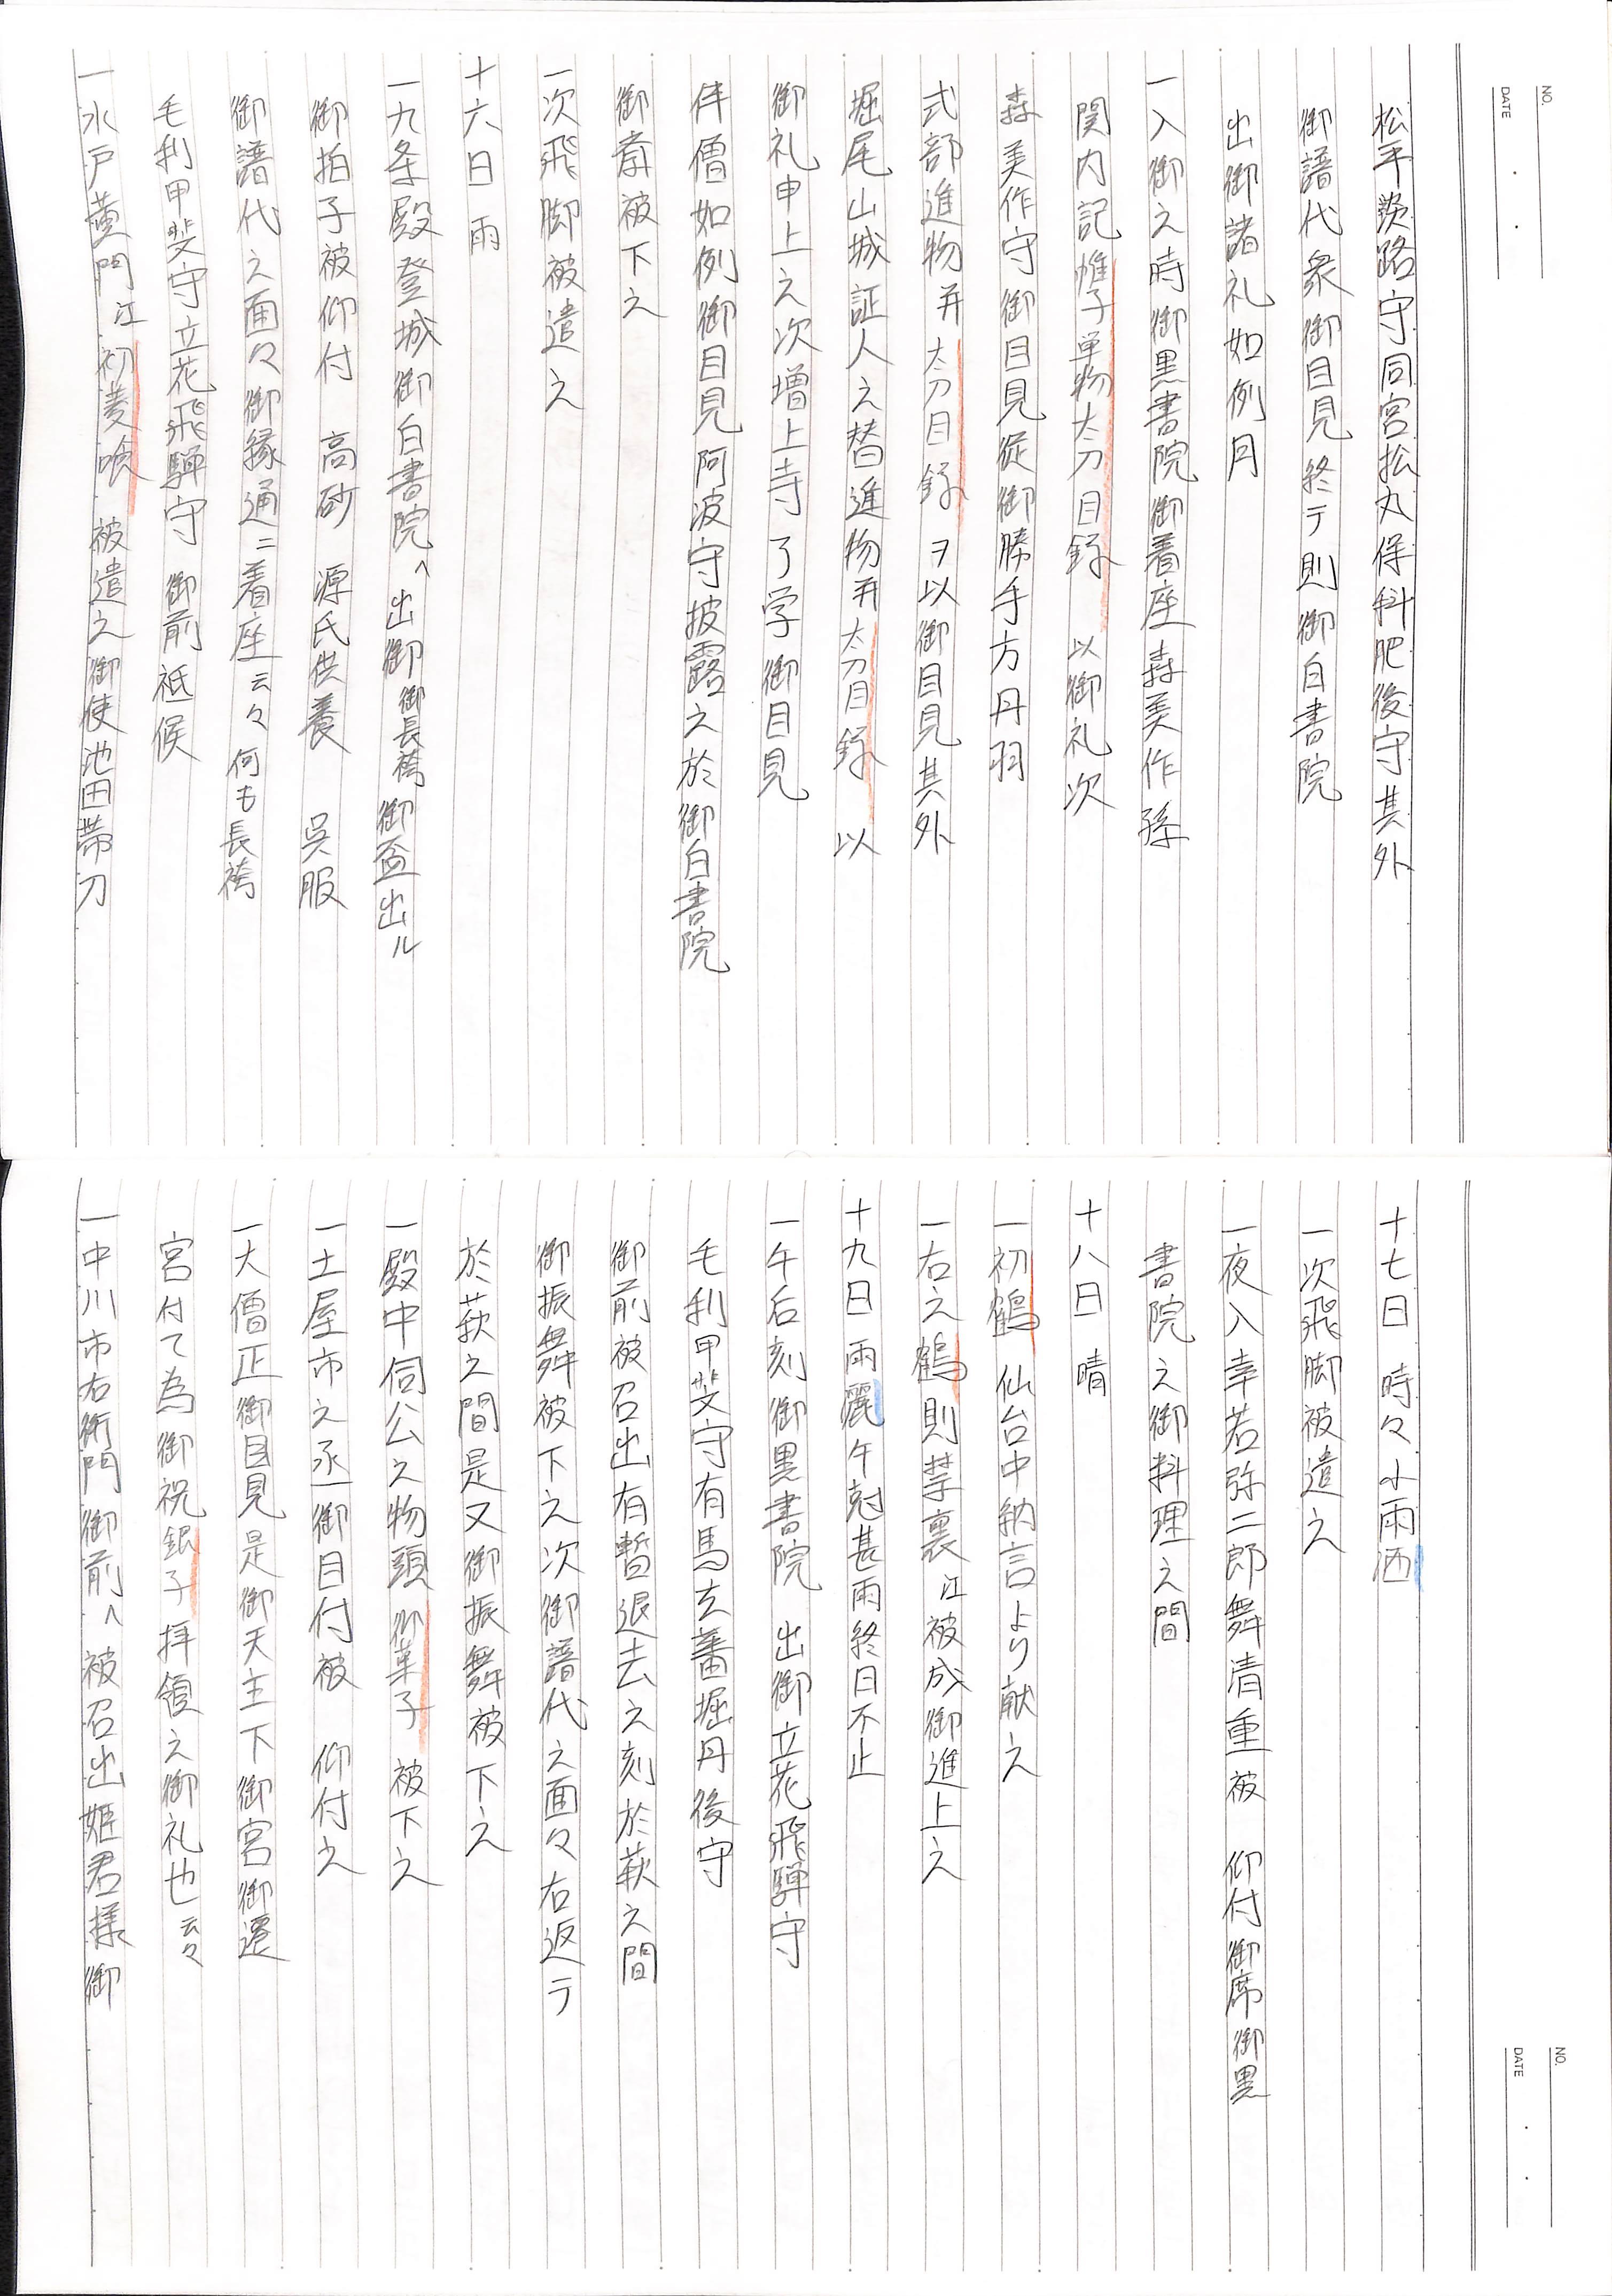 NO.
DATE
松平淡路守同宮松丸保科肥後守其外
御譜代衆御目見終テ則御白書院
出御諸礼如例月
一入御之時御黒書院御着座森美作孫
関内記帷子単物太刀目録 以御礼次
森美作守御目見従御勝手方丹羽
式部進物并太刀目録ヲ以御目見其外
堀尾山城証人之替進物并太刀目録 以
御礼申上之次増上寺了学御目見
伴僧如例御目見阿波守披露之於御白書院
御斎被下之
一次飛脚被遣之
十六日 雨
一九条殿登城御白書院へ出御御長袴御盃出ル
御拍子被仰付 高砂 源氏供養 呉服
御譜代之面々御縁通ニ着座云々何も長袴
毛利甲斐守立花飛騨守 御前祗候
一水戸黄門江初菱喰 被遣之御使池田帯刀
NO.
DATE
十七日 時々小雨洒
一次飛脚被遣之
一夜入幸若弥二郎舞清重被 仰付御席御黒
書院之御料理之間
十八日 晴
一初鶴 仙台中納言より献之
一右之鶴則禁裏江被成御進上之
十九日雨麗午尅甚雨終日不止
一午后刻御黒書院 出御立花飛騨守
毛利甲斐守有馬玄蕃堀丹後守
御前被召出有暫退去之刻於萩之間
御振舞被下之次御譜代之面々右返テ
於萩之間是又御振舞被下之
一殿中伺公之物頭御菓子 被下之
一土屋市之丞御目付被 仰付之
一大僧正御目見是御天主下御宮御遷
宮付て為御祝銀子拝領之御礼也云々
一中川市右衛門御前へ被召出姫君様御